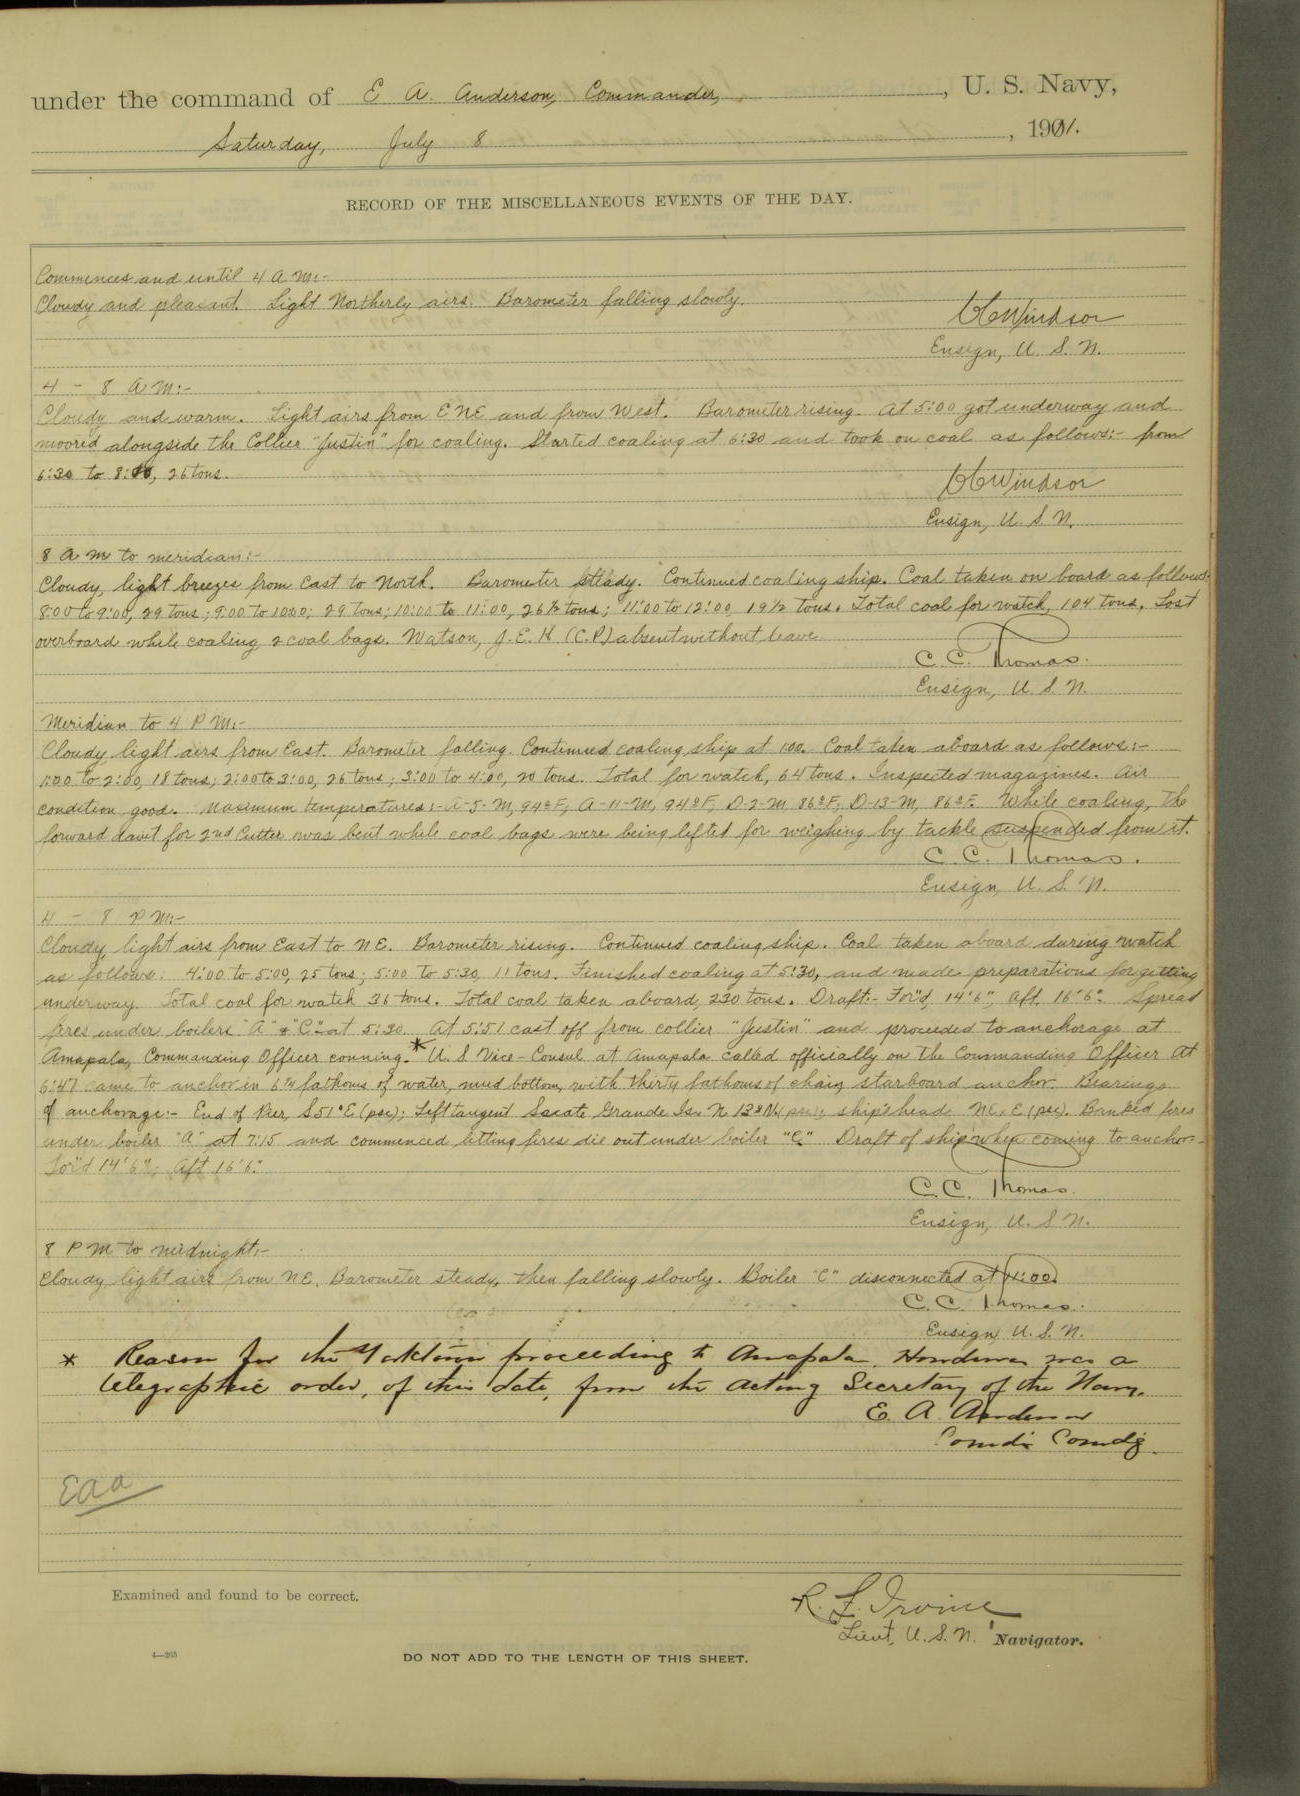 under the command of E. A. Anderson, Commander, , U. S. Navy,
Saturday, July 8 , 1901.
RECORD OF THE MISCELLANEOUS EVENTS OF THE DAY.
Commences and until 4 A.M:-
Cloudy and pleasant. Light Northerly airs. Barometer falling slowly.
Windsor
Ensign, U. S. N.
4 - 8 A M:-
Cloudy and warm. Light airs from E NE and from West. Barometer rising. At 5:00 got underway and
moored alongside the Collier "Justin" for coaling. Started coaling at 6:30 and took on coal as follows:- from
6:30 to 8:00, 26 tons.
Windsor
Ensign, U. S. N.
8 A M to meridian:-
Cloudy, light breezes from East to North. Barometer steady. Continued coaling ship. Coal taken on board as follows:
8:00 to 9:00, 29 tons; 9:00 to 10:00; 29 tons; 10:00 to 11:00, 26½ tons; 11:00 to 12:00, 19½ tons. Total coal for watch, 104 tons. Lost
overboard while coaling 2 coal bags. Watson, J. E. H (C.P.) absent without leave.
C. C. Thomas.
Ensign, U. S. N.
Meridian to 4 P M:-
Cloudy light airs from East. Barometer falling. Continued coaling ship at 1:00. Coal taken aboard as follows:-
1:00 to 2:00, 18 tons; 2:00 to 3:00, 26 tons; 3:00 to 4:00, 20 tons. Total for watch, 64 tons. Inspected magazines. Air
condition good. Maximum temperatures:- A-5-M, 94°F, A-11-M, 94°F, D-2-M, 86°F, D-13-M, 86°F. While coaling, the
forward davit for 2nd Cutter was bent while coal bags were being lifted for weighing by tackle suspended from it.
C. C. Thomas.
Ensign, U. S. N.
4 - 8 P M:-
Cloudy, light airs from East to NE. Barometer rising. Continued coaling ship. Coal taken aboard during watch
as follows: 4:00 to 5:00, 25 tons; 5:00 to 5:30, 11 tons. Finished coaling at 5:30, and made preparations for getting
underway. Total coal for watch 36 tons. Total coal taken aboard, 230 tons. Draft:- For'd, 14'6", Aft, 16'6". Spread
fires under boilers "A" & "C" at 5:30. At 5:51 cast off from collier "Justin" and proceeded to anchorage at
Amapala, Commanding Officer conning.* U. S Vice-Consul at Amapala called officially on the Commanding Officer At
6:47 came to anchor in 6¼ fathoms of water, mud bottom, with thirty fathoms of chain, starboard anchor. Bearings
of anchorage:- End of Pier, S 51° E (psc); Left tangent Sacate Grande Is. N 13° W (psc); ship's head NE x E (psc). Banked fires
under boiler "A" at 7:15 and commenced letting fires die out under boiler "C". Draft of ship when coming to anchor:-
For'd 14'6"; Aft 16'6".
C. C. Thomas.
Ensign, U. S. N.
8 P M to midnight:-
Cloudy light airs from NE. Barometer steady, then falling slowly. Boiler "C" disconnected at
C. C. Thomas.
Ensign U. S. N.
* Reason for the Yorktown proceeding to Amapala, Honduras was a
telegraphic order, of this date, from the Acting Secretary of the Navy.
E. A. Anderson
Comdr Comdg.
EAA
Examined and found to be correct.
R. F. Irvine
Lieut, U. S. N. Navigator.
4—265
DO NOT ADD TO THE LENGTH OF THIS SHEET.